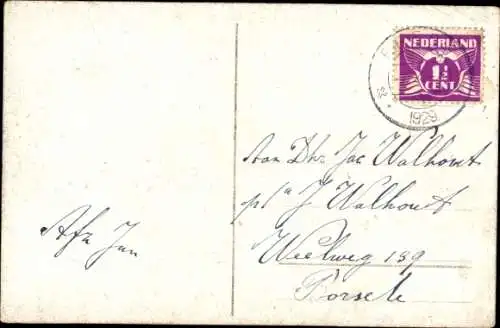 NEDERLAND
1½
CENT
1929
Aan Dhr Jac Walhout
p/a J Walhout
Weelweg 139
Borsele
Afz Jan